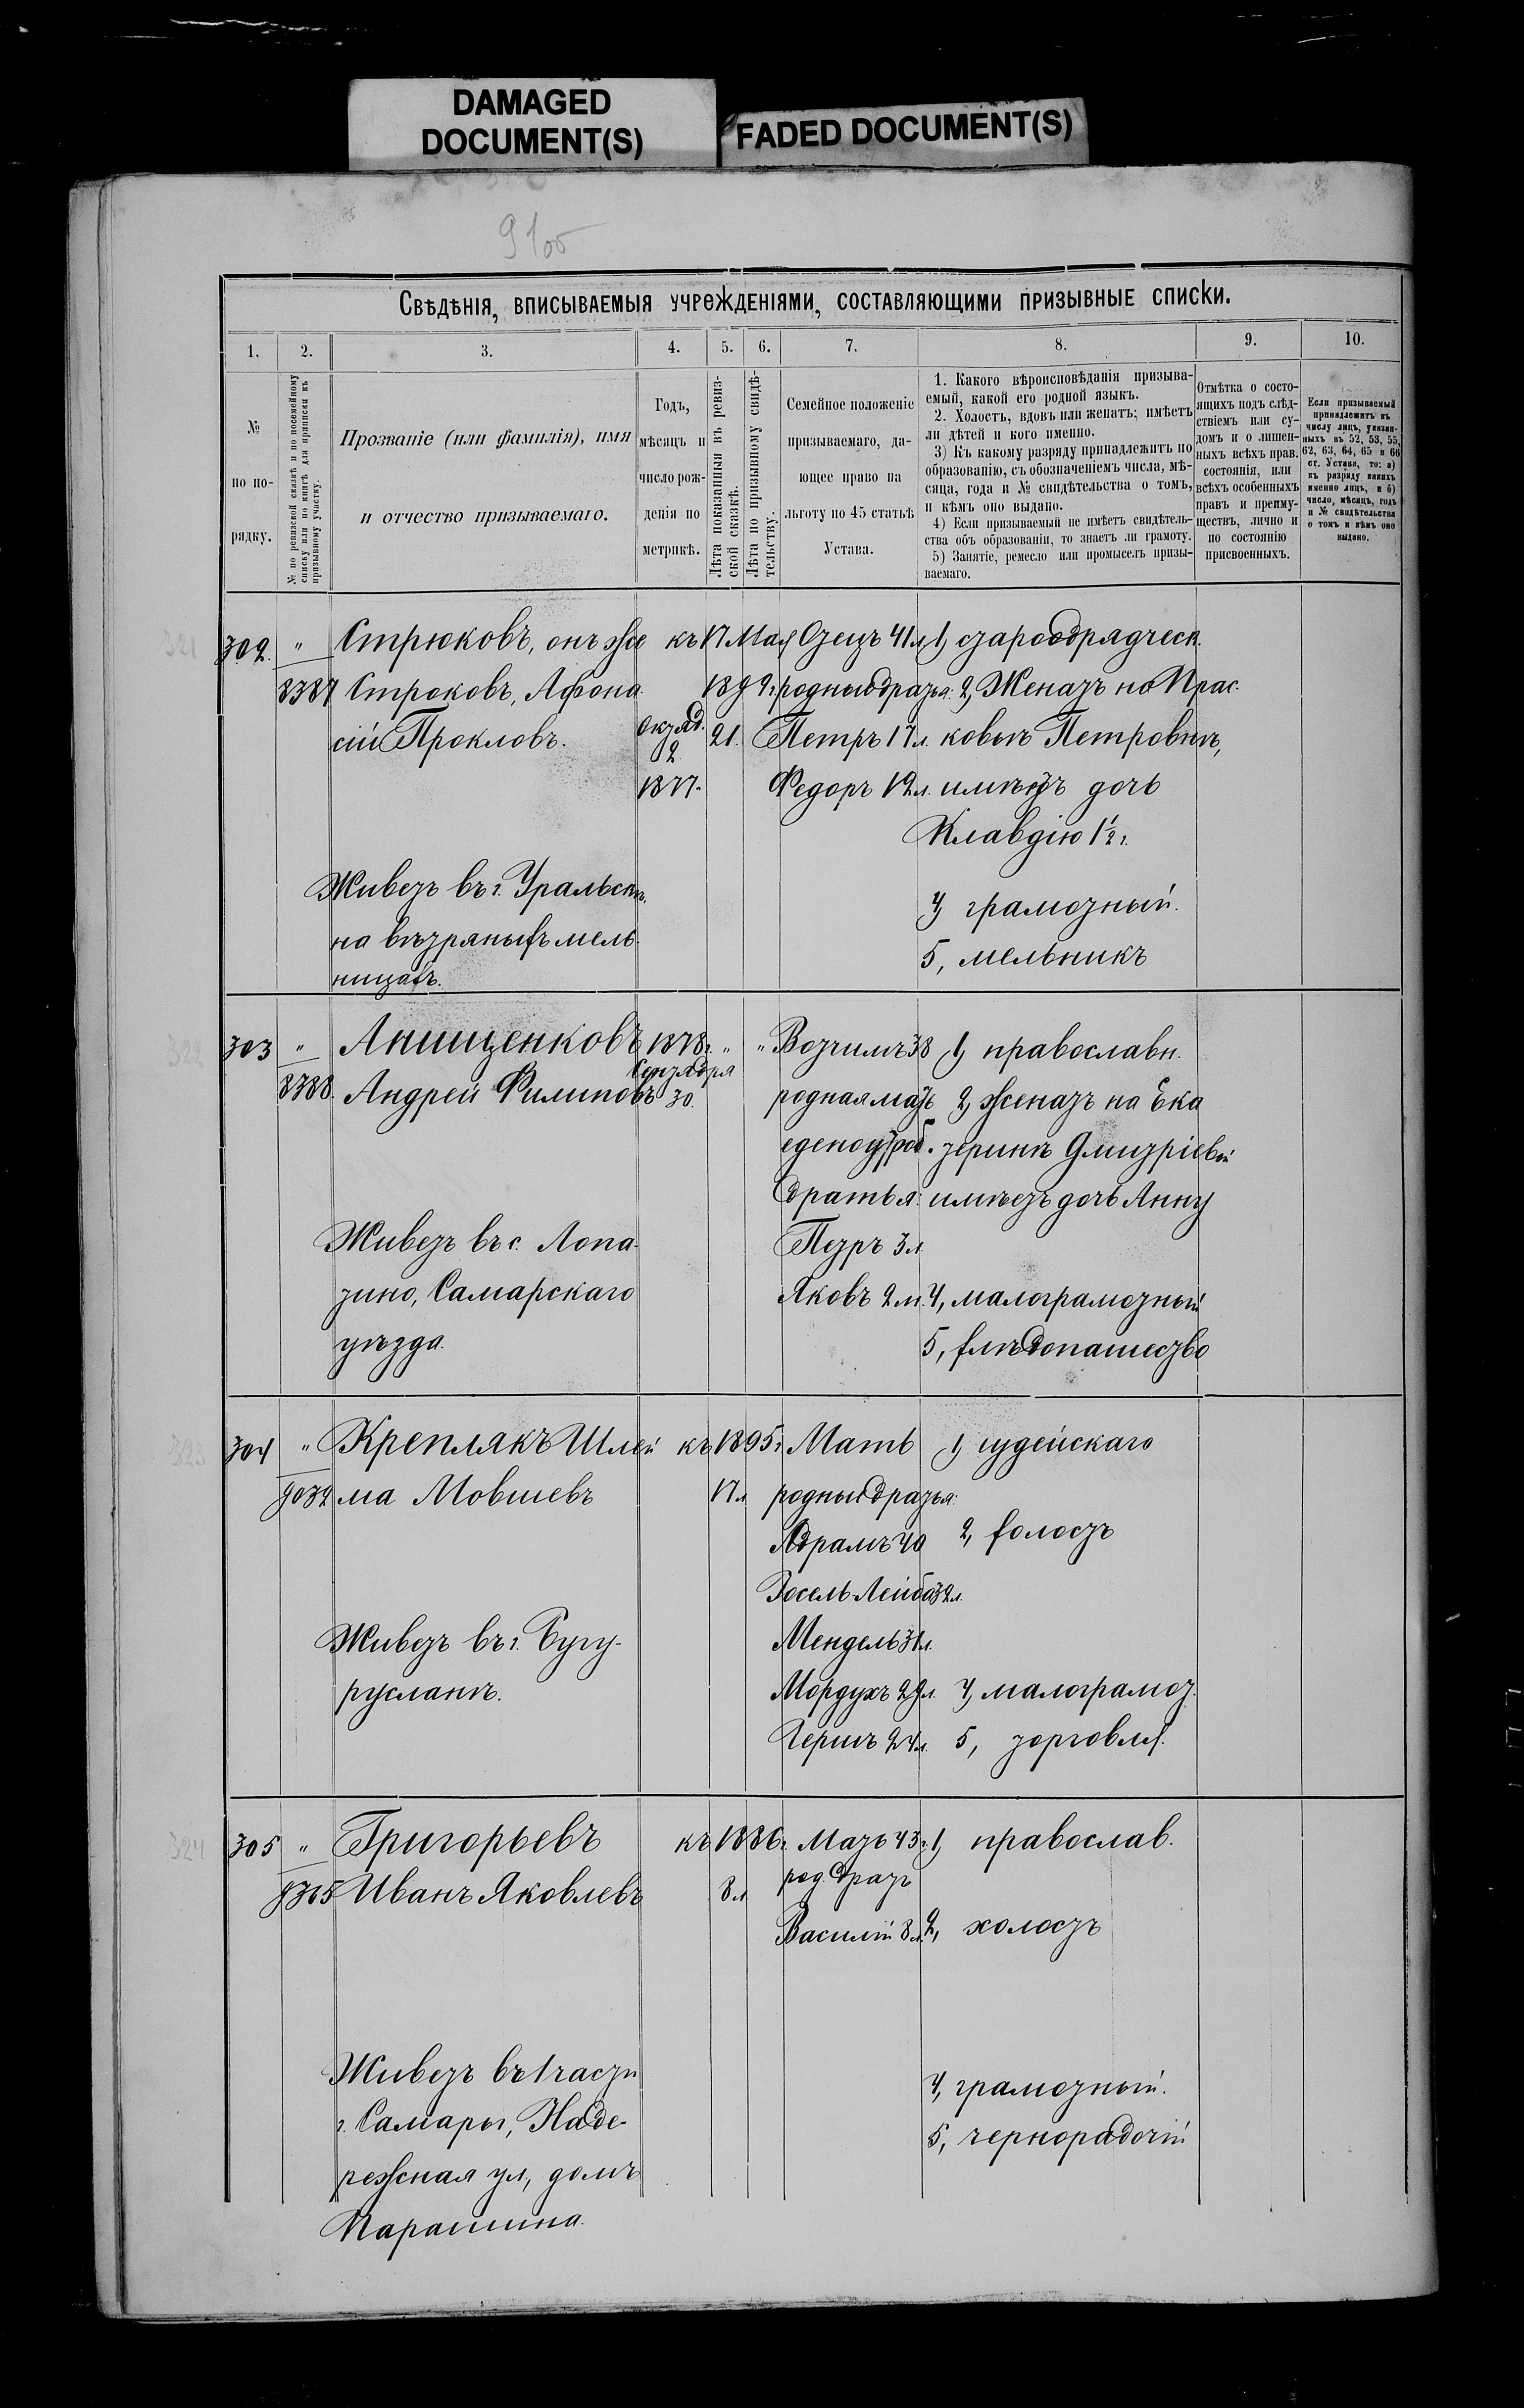 DAMAGED
DOCUMENT(S)
FADED DOCUMENT(S)
Свѣдѣнія, вписываемыя учрежденіями, составляющими призывные списки.
1. 2. 3. 4. 5. 6. 7. 8. 9. 10.
№
по по-
рядку.
№ по ревизской сказкѣ и по посемейному
списку или по книгѣ для приписки къ
призывному участку.
Прозваніе (или фамилія), имя
и отчество призываемаго.
Годъ,
мѣсяцъ и
число рож-
денія по
метрикѣ.
Лѣта показанныя въ ревиз-
ской сказкѣ.
Лѣта по призывному свидѣ-
тельству.
Семейное положеніе
призываемаго, да-
ющее право на
льготу по 45 статьѣ
Устава.
1. Какого вѣроисповѣданія призыва-
емый, какой его родной языкъ.
2. Холостъ, вдовъ или женатъ; имѣетъ
ли дѣтей и кого именно.
3) Къ какому разряду принадлежитъ по
образованію, съ обозначеніемъ числа, мѣ-
сяца, года и № свидѣтельства о томъ,
и кѣмъ оно выдано.
4) Если призываемый не имѣетъ свидѣтель-
ства объ образованіи, то знаетъ ли грамоту.
5) Занятіе, ремесло или промыселъ призы-
ваемаго.
Отмѣтка о состо-
ящихъ подъ слѣд-
ствіемъ или су-
домъ и о лишен-
ныхъ всѣхъ прав.
состоянія, или
всѣхъ особенныхъ
правъ и преиму-
ществъ, лично и
по состоянію
присвоенныхъ.
Если призываемый
принадлежитъ къ
числу лицъ, указан-
ныхъ въ 52, 53, 55,
62, 63, 64, 65 и 66
ст. Устава, то: а)
къ разряду какихъ
именно лицъ, и б)
число, мѣсяцъ, годъ
и № свидѣтельства
о томъ и кѣмъ оно
выдано.
321
302. "
8387
Стрюковъ, онъ же
Строковъ, Афона
сій Прокловъ.
къ 17 Мая
1892г.
Октяб.
2
1877.
21.
Отецъ 41л
родные братья:
Петръ 17л.
Федоръ 12л.
1, старообрядческ.
2, Женатъ на Прас.
ковьѣ Петровнѣ,
имѣетъ дочь
Клавдію 1½ г.
4, грамотный.
5, мельникъ
Живетъ въ г. Уральскѣ,
на вѣтряныхъ мель-
ницахъ.
322
303 "
8388.
Анищенковъ
Андрей Филиповъ
1878г. " "
Сентября
30.
Вотчимъ 38
родная мать
еденоутроб.
братья:
Петръ 3л
Яковъ 2л.
1, православн.
2, женатъ на Ека
теринѣ Дмитріевой
имѣетъ дочь Анну
4, малограмотный
5, хлѣбопашество
Живетъ въ с. Лопа-
тино, Самарскаго
уѣзда.
323
304 "
9032
Креплякъ Шлей
ма Мовшевъ
къ 1895г.
17л
Мать
родные братья:
Абрамъ 40
Іосель-Лейба 32л.
Мендель 31л.
Мордухъ 29л.
Гершъ 24л.
1, іудейскаго
2, холостъ
4, малограмот.
5, торговля.
Живетъ въ г. Бугу-
русланѣ.
324
305 "
9365
Григорьевъ
Иванъ Яковлевъ
къ 1886г.
8л
Мать 43г.
род. братъ
Василій 8л.
1, православ.
2, холостъ
4, грамотный.
5, чернорабочій
Живетъ въ 1 части
г. Самары, Набе-
режная ул, домъ
Парашина.